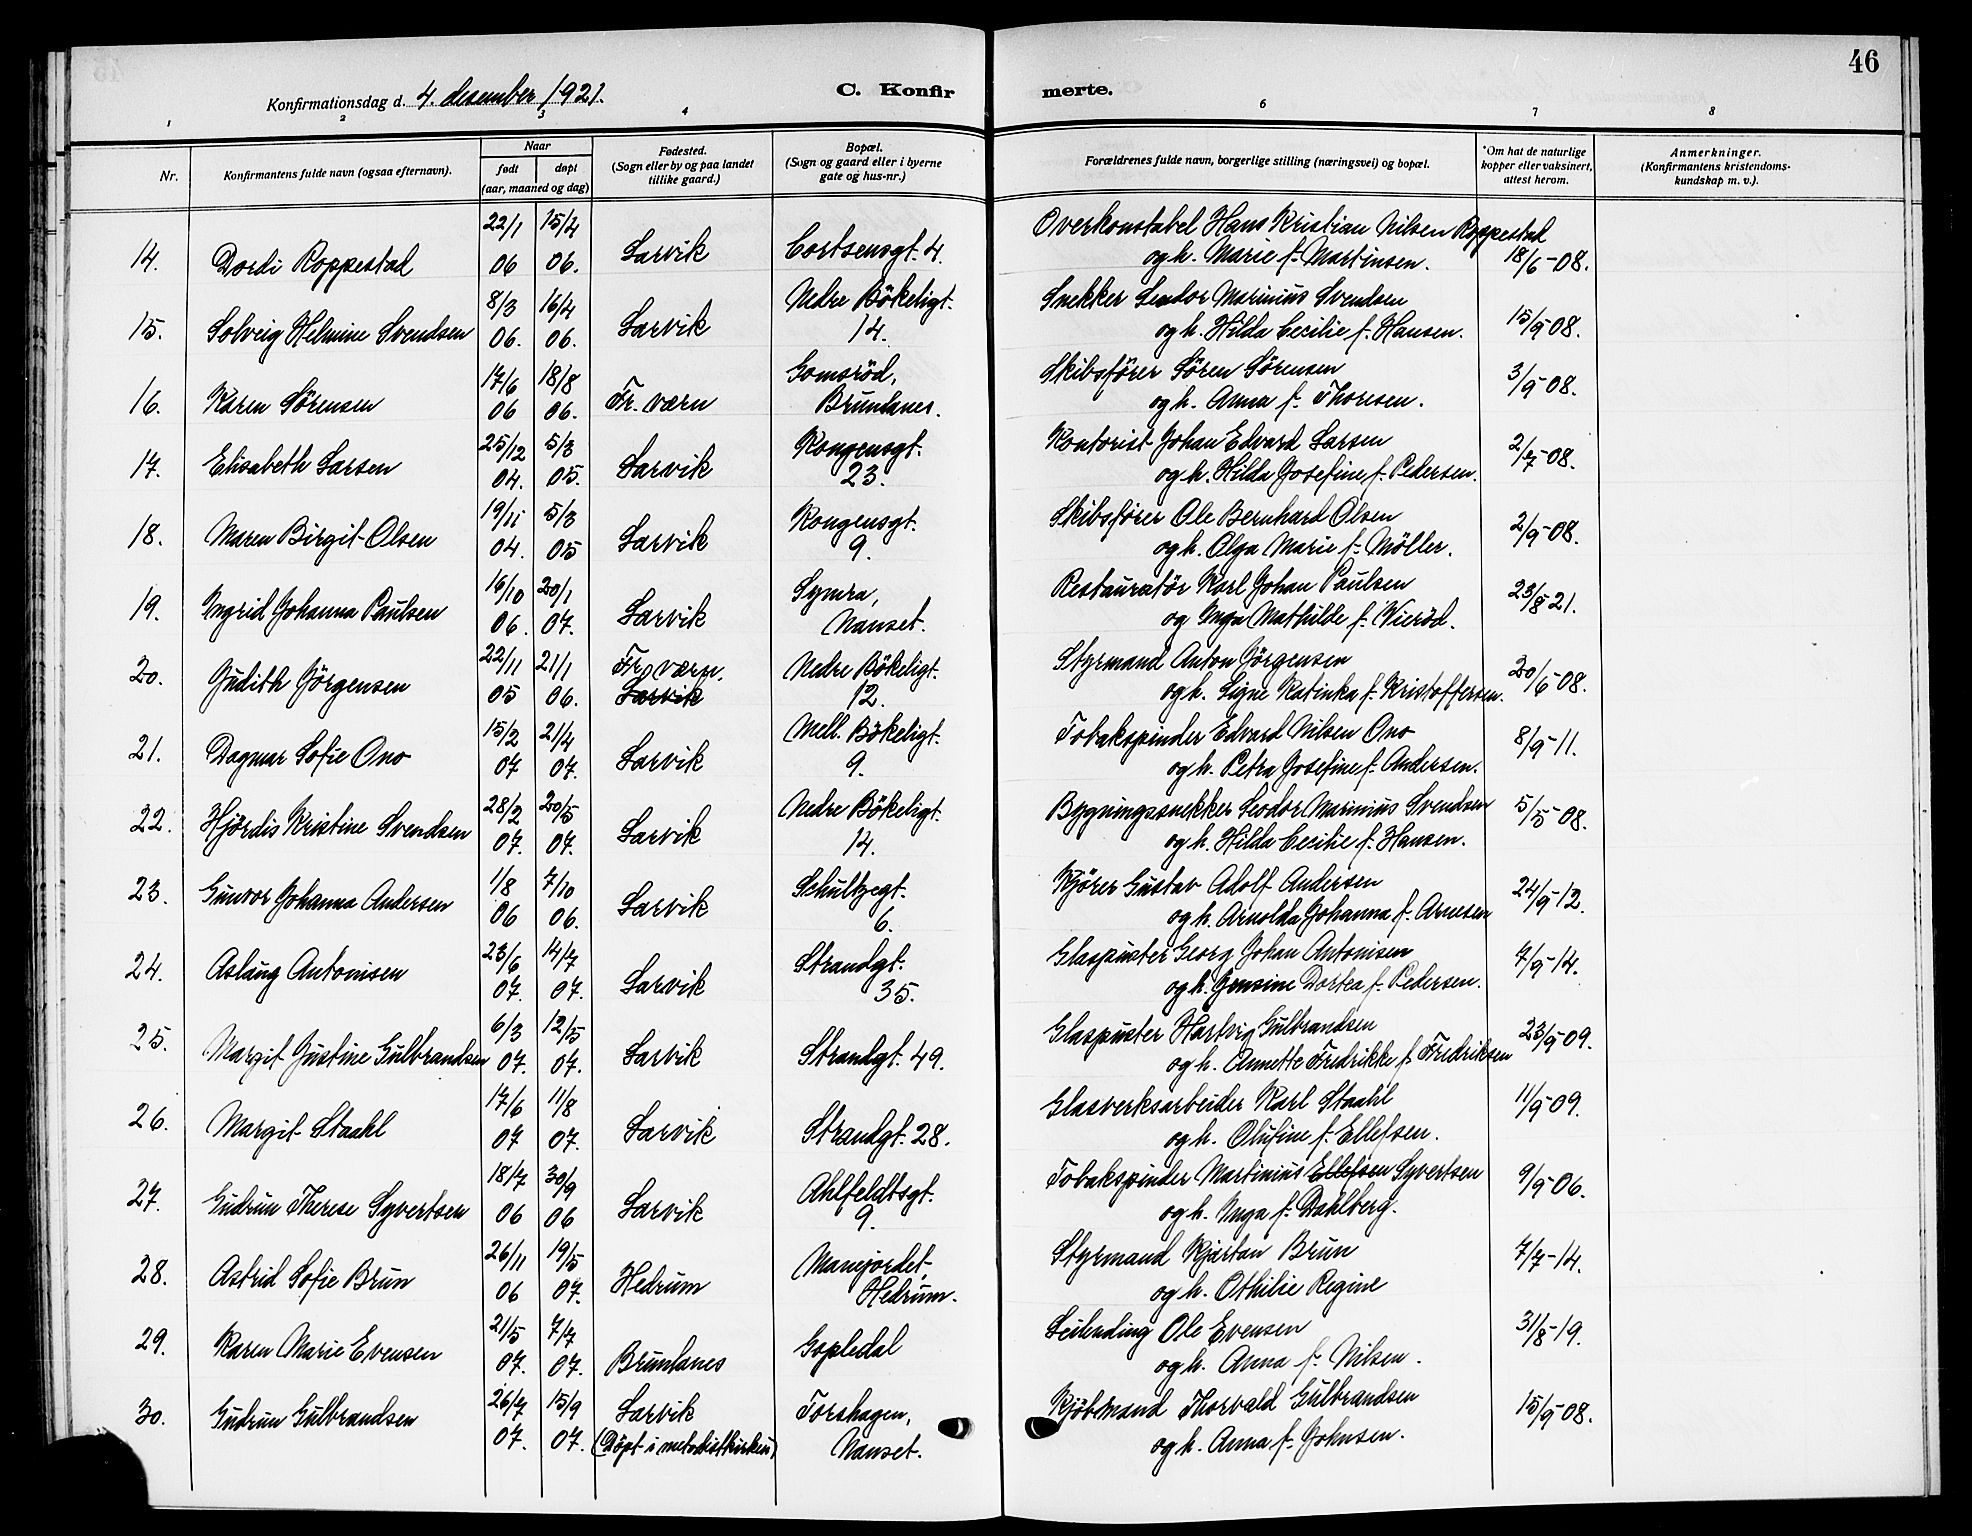 46
Konfirmationsdag d. 4. desember 1921.
C. Konfir
merte.
1 2 3 4 6 7 8
Nr.
Konfirmantens fulde navn (ogsaa efternavn).
Naar
født
døpt
(aar, maaned og dag)
Fødested.
(Sogn eller by og paa landet
tillike gaard.)
Bopæl.
(Sogn og gaard eller i byerne
gate og hus-nr.)
Forældrenes fulde navn, borgerlige stilling (næringsvei) og bopæl.
*Om hat de naturlige
kopper eller vaksinert,
attest herom.
Anmerkninger.
(Konfirmantens kristendoms-
kundskap m. v.).
22/1 15/4 Overkonstabel Hans Kristian Nilsen Roppestad
14. Dordi Roppestad 06 06. Larvik Cortsensgt. 4. og h. Marie f. Martinsen. 18/6-08.
8/3 16/4 Nedre Bökeligt. Snekker Leodor Marinius Svendsen
15. Solveig Helmine Svendsen 06. 06. Larvik 14. og h. Hilda Cecilie f. Hansen. 15/9-08.
17/6 18/8 Gomsröd, Skibsförer Sören Sörensen
16. Karen Sörensen 06 06. Fr. værn Brunlanes. og h. Anna f. Thoresen. 3/9-08.
25/12 5/3 Kongensgt. Kontorist Johan Edvard Larsen
17. Elisabeth Larsen 04. 05. Larvik 23. og h. Hilda Josefine f. Pedersen. 2/7-08.
19/11 5/3 Kongensgt. Skibsförer Ole Bernhard Olsen
18. Maren Birgit Olsen 04. 05 Larvik 9. og h. Olga Marie f. Möller. 2/9-08.
16/10 20/1 Symra, Restauratör Karl Johan Paulsen
19. Ingrid Johanna Paulsen 06. 07. Larvik Nanset. og Inga Mathilde f. Vieröd. 23/8-21.
22/11 21/1 Fr. værn. Nedre Bökeligt. Styrmand Anton Jörgensen
20. Judith Jörgensen 05 06. Larvik 12. og h. Signe Katinka f. Kristoffersen. 20/6-08.
15/2 21/4 Mell. Bökeligt. Tobakspinder Edvard Nilsen Ono
21. Dagmar Sofie Ono 07 07. Larvik 9. og h. Petra Josefine f. Andersen. 8/9-11.
28/2 20/5 Nedre Bökeligt. Bygningssnekker Leodor Marinius Svendsen
22. Hjördis Kristine Svendsen 07. 07. Larvik 14. og h. Hilda Cecilie f. Hansen. 5/5-08.
1/8 7/10 Schultzegt. Kjörer Gustav Adolf Andersen
23. Gunvor Johanna Andersen 06 06. Larvik 6. og h. Arnolda Johanna f. Arnesen 24/9-12.
23/6 14/7 Strandgt. Glaspuster Georg Johan Antonisen
24. Aslaug Antonisen 07. 07. Larvik 35. og h. Jensine Dortea f. Pedersen. 7/9-14.
6/3 12/5 Glaspuster Hartvig Gulbrandsen
25. Margit Justine Gulbrandsen 07. 07. Larvik Strandgt. 49. og h. Annette Fredrikke f. Fredriksen 23/9-09.
17/6 11/8 Glasverksarbeider Karl Staahl
26. Margit Staahl 07 07. Larvik Strandgt. 28. og h. Olufine f. Ellefsen. 11/9-09.
18/7 30/9 Ahlfeldtsgt. Tobakspinder Martinius Ellefsen Syvertsen
27. Gudrun Therese Syvertsen 06 06 Larvik 9. og h. Inga f. Dahlberg. 9/9-06.
26/11 19/5 Manejordet, Styrmand Kjartan Brun
28. Astrid Sofie Brun 06 07. Hedrum Hedrum. og h. Othilie Regine 7/7-14.
21/5 7/7 Gopledal Leilending Ole Evensen
29. Karen Marie Evensen 07. 07. Brunlanes og h. Anna f. Nilsen. 31/8-19.
26/7 15/9 Larvik Torshagen, Kjöbmand Thorvald Gulbrandsen
30. Gudrun Gulbrandsen 07. 07. (Döpt i metodistkirken) Nanset. og h. Anna f. Johnsen. 15/9-08.